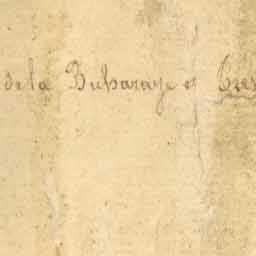 de la Dubaraye et